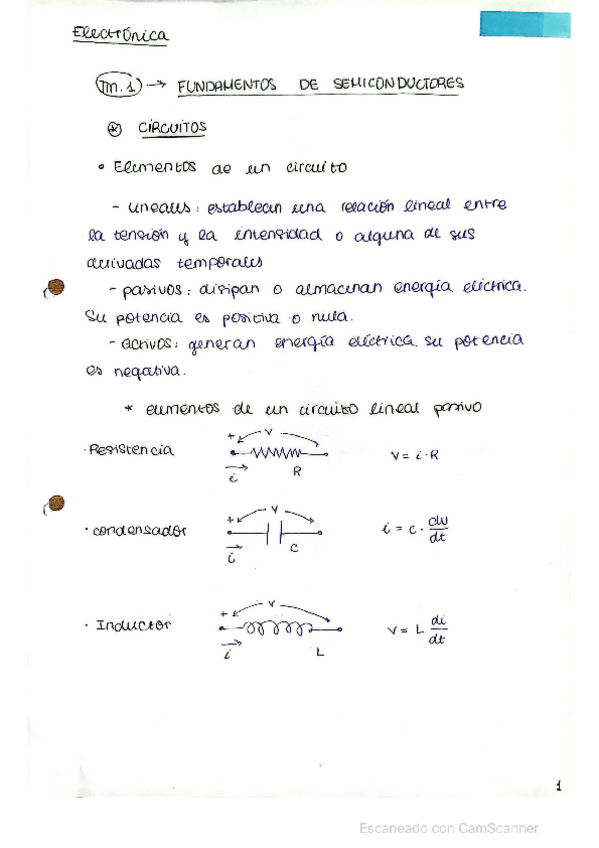 Electrónica
Tm.1) → FUNDAMENTOS DE SEMICONDUCTORES
* CIRCUITOS
• Elementos de un circuito
- lineales: establecen una relación lineal entre
la tensión y la intensidad o alguna de sus
derivadas temporales
- pasivos: disipan o almacenan energía eléctrica.
Su potencia es positiva o nula.
- activos: generan energía eléctrica. su potencia
es negativa.
* elementos de un circuito lineal pasivo
· Resistencia + V i R V = i·R
· condensador + V i C i = C · dv/dt
· Inductor + V i L V = L di/dt
1
Escaneado con CamScanner